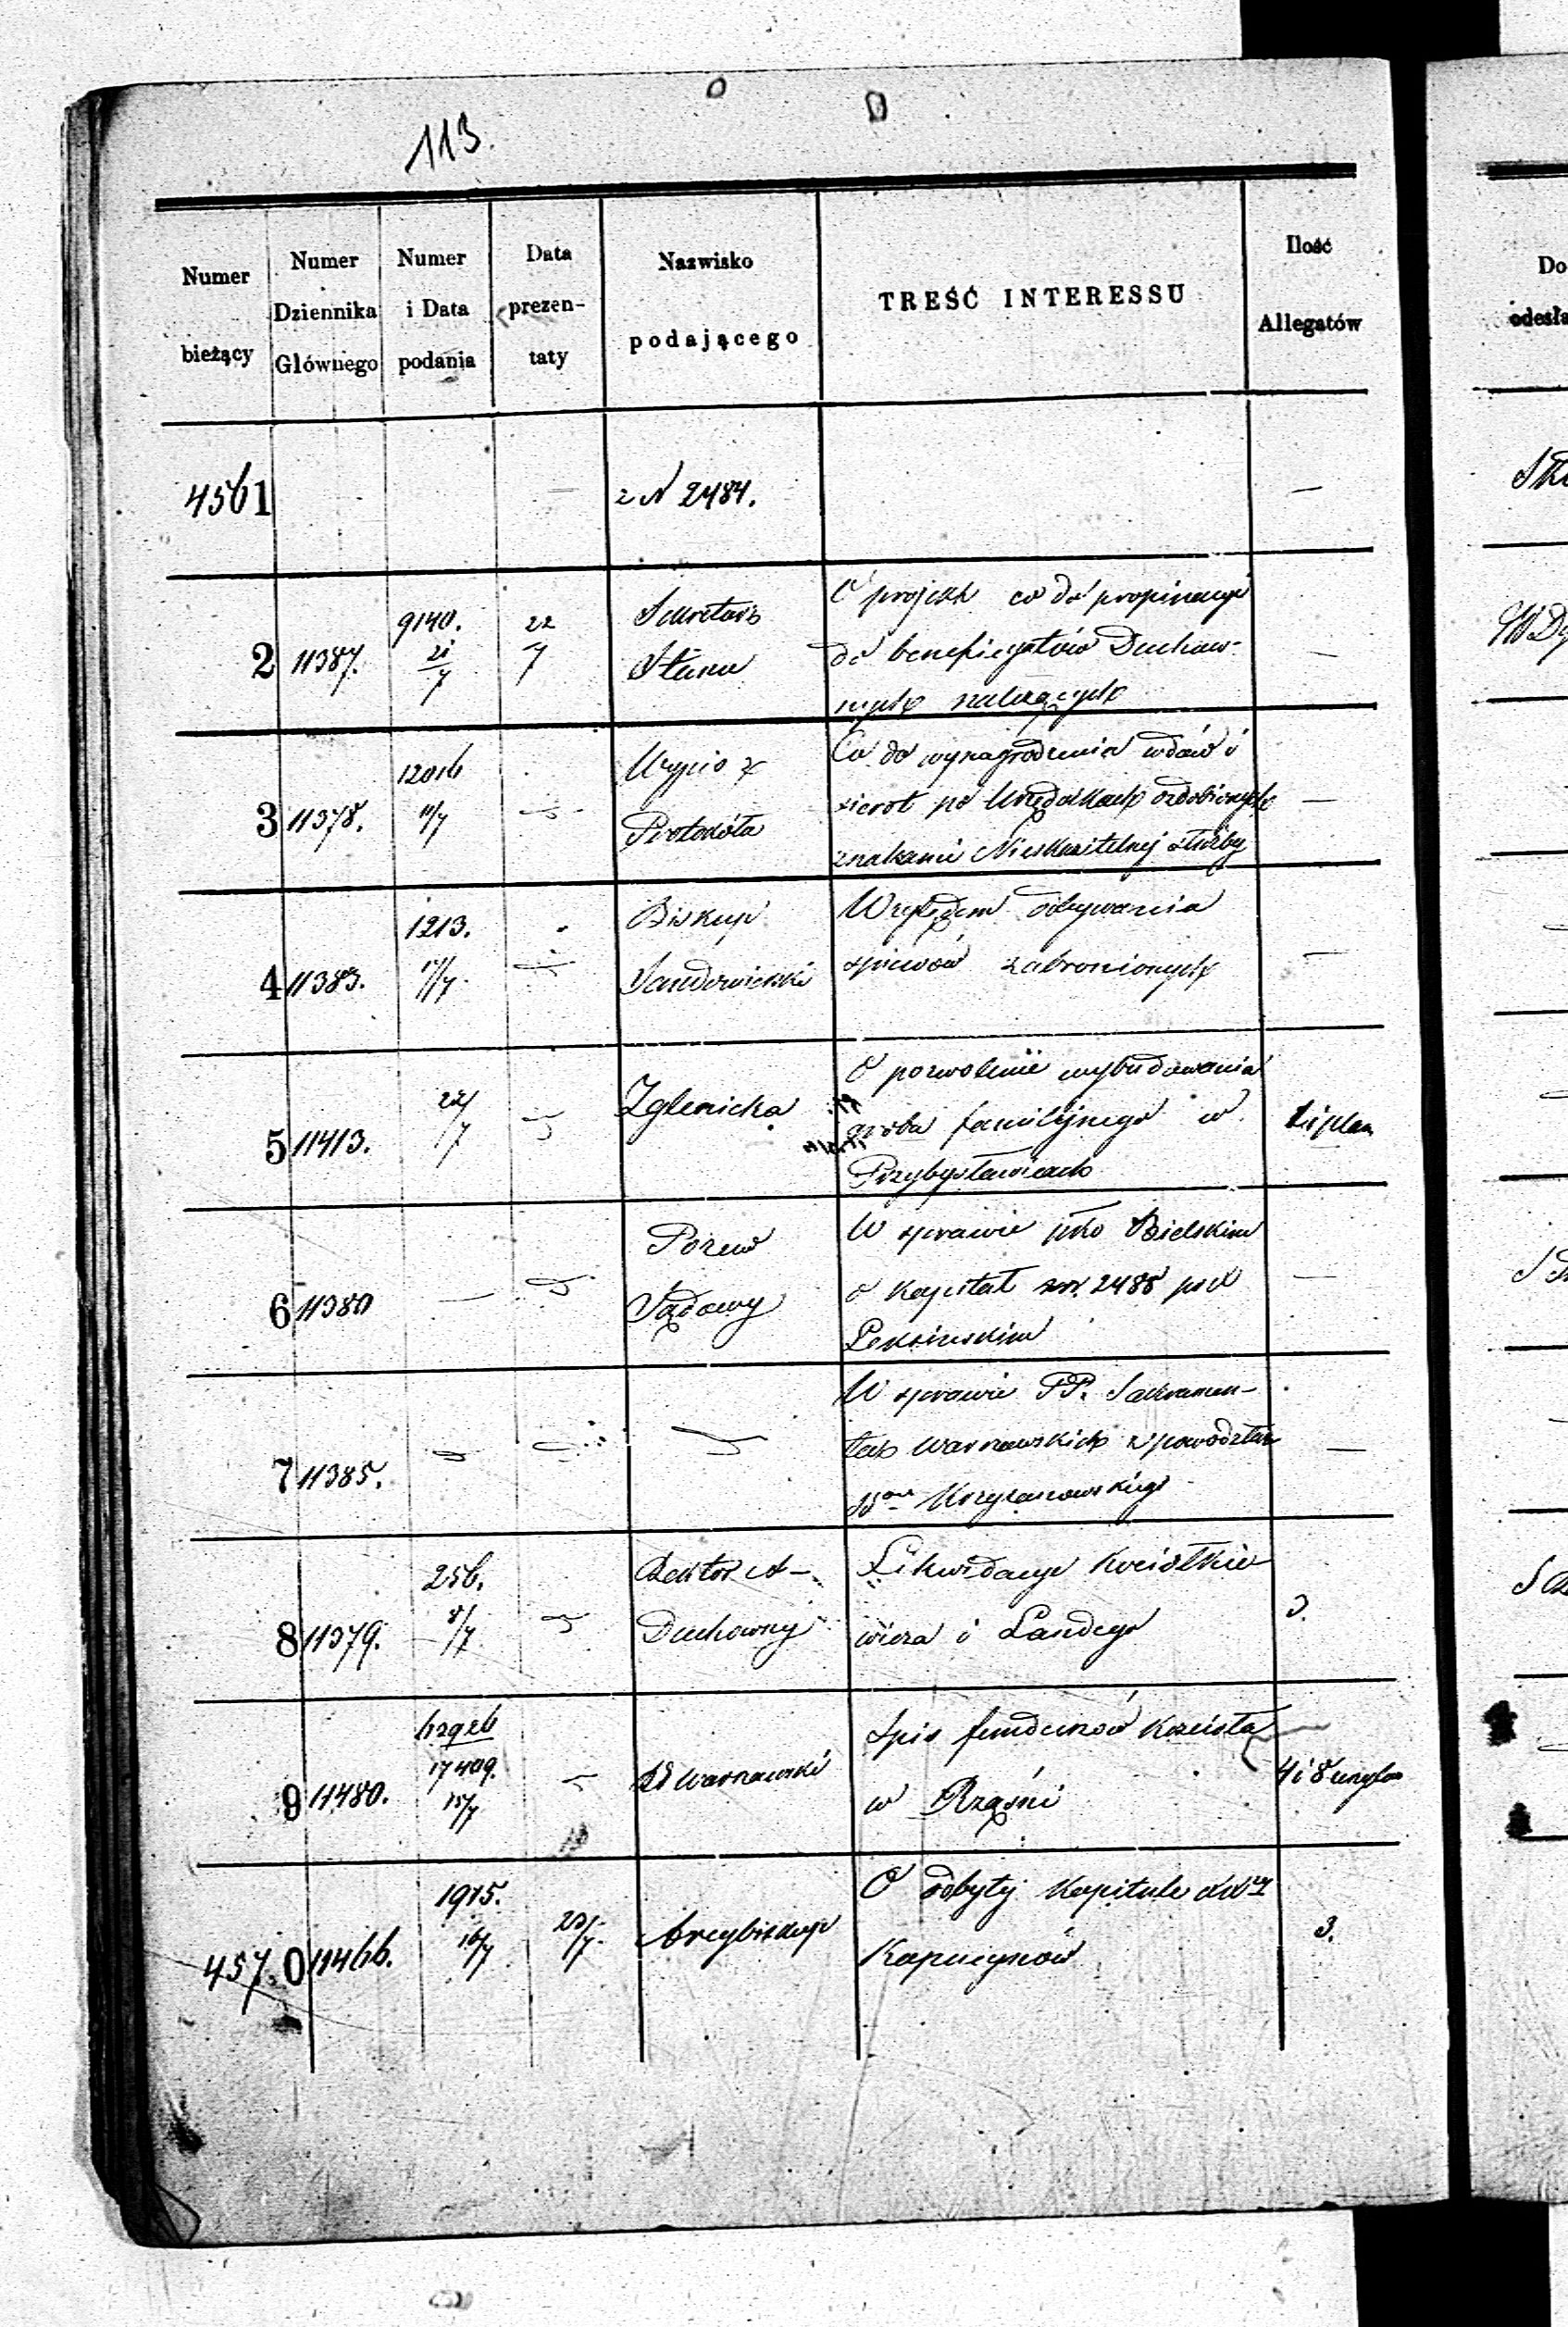 113.
Numer bieżący
Numer Dziennika Głównego
Numer i Data podania
Data prezen- taty
Nazwisko podającego
TREŚĆ INTERESSU
Ilość Allegatów
4561
z N 2484.
—
2 11387.
9140. 21/7
22/7
Sekretarz
Stanu
O projekt co do propinacyi
do beneficyatów Duchow-
nych należących
—
3 11378.
12016 11/7
Wypis z
Protokóła
Co do wynagrodzenia wdów i
sierot po Urzędnikach ozdobionych
znakami Nieskazitelnej służby
—
4 11383.
1213. 17/7
Biskup
Sandomierski
Względem odbywania
śpiewów zabronionych
—
5 11413.
22/7
Zglenicka
O pozwolenie wybudowania
grobu familijnego w
Przybysławicach
1 i plan
6 11380
—
Pozew
Sądowy
W sprawie pko Bielskim
o kapitał 2485 pod
—
7 11385.
W sprawie PP. Sakramen-
tek Warszawskich z powództwa
Krzyżanowskiego
—
8 11379.
256. 8/7
Rektor A-
Duchowny
Likwidacye Kociołkie-
wicza i Landego
3.
9 11480.
62926
17409. 15/7
Rd Warszawski
Spis funduszów Kościoła
w Rząśni
4 i 8
4570 11466.
1915. 16/7
23/7
Arcybiskup
O odbytej Kapitule XX
Kapucynów
3.
Do
odesła